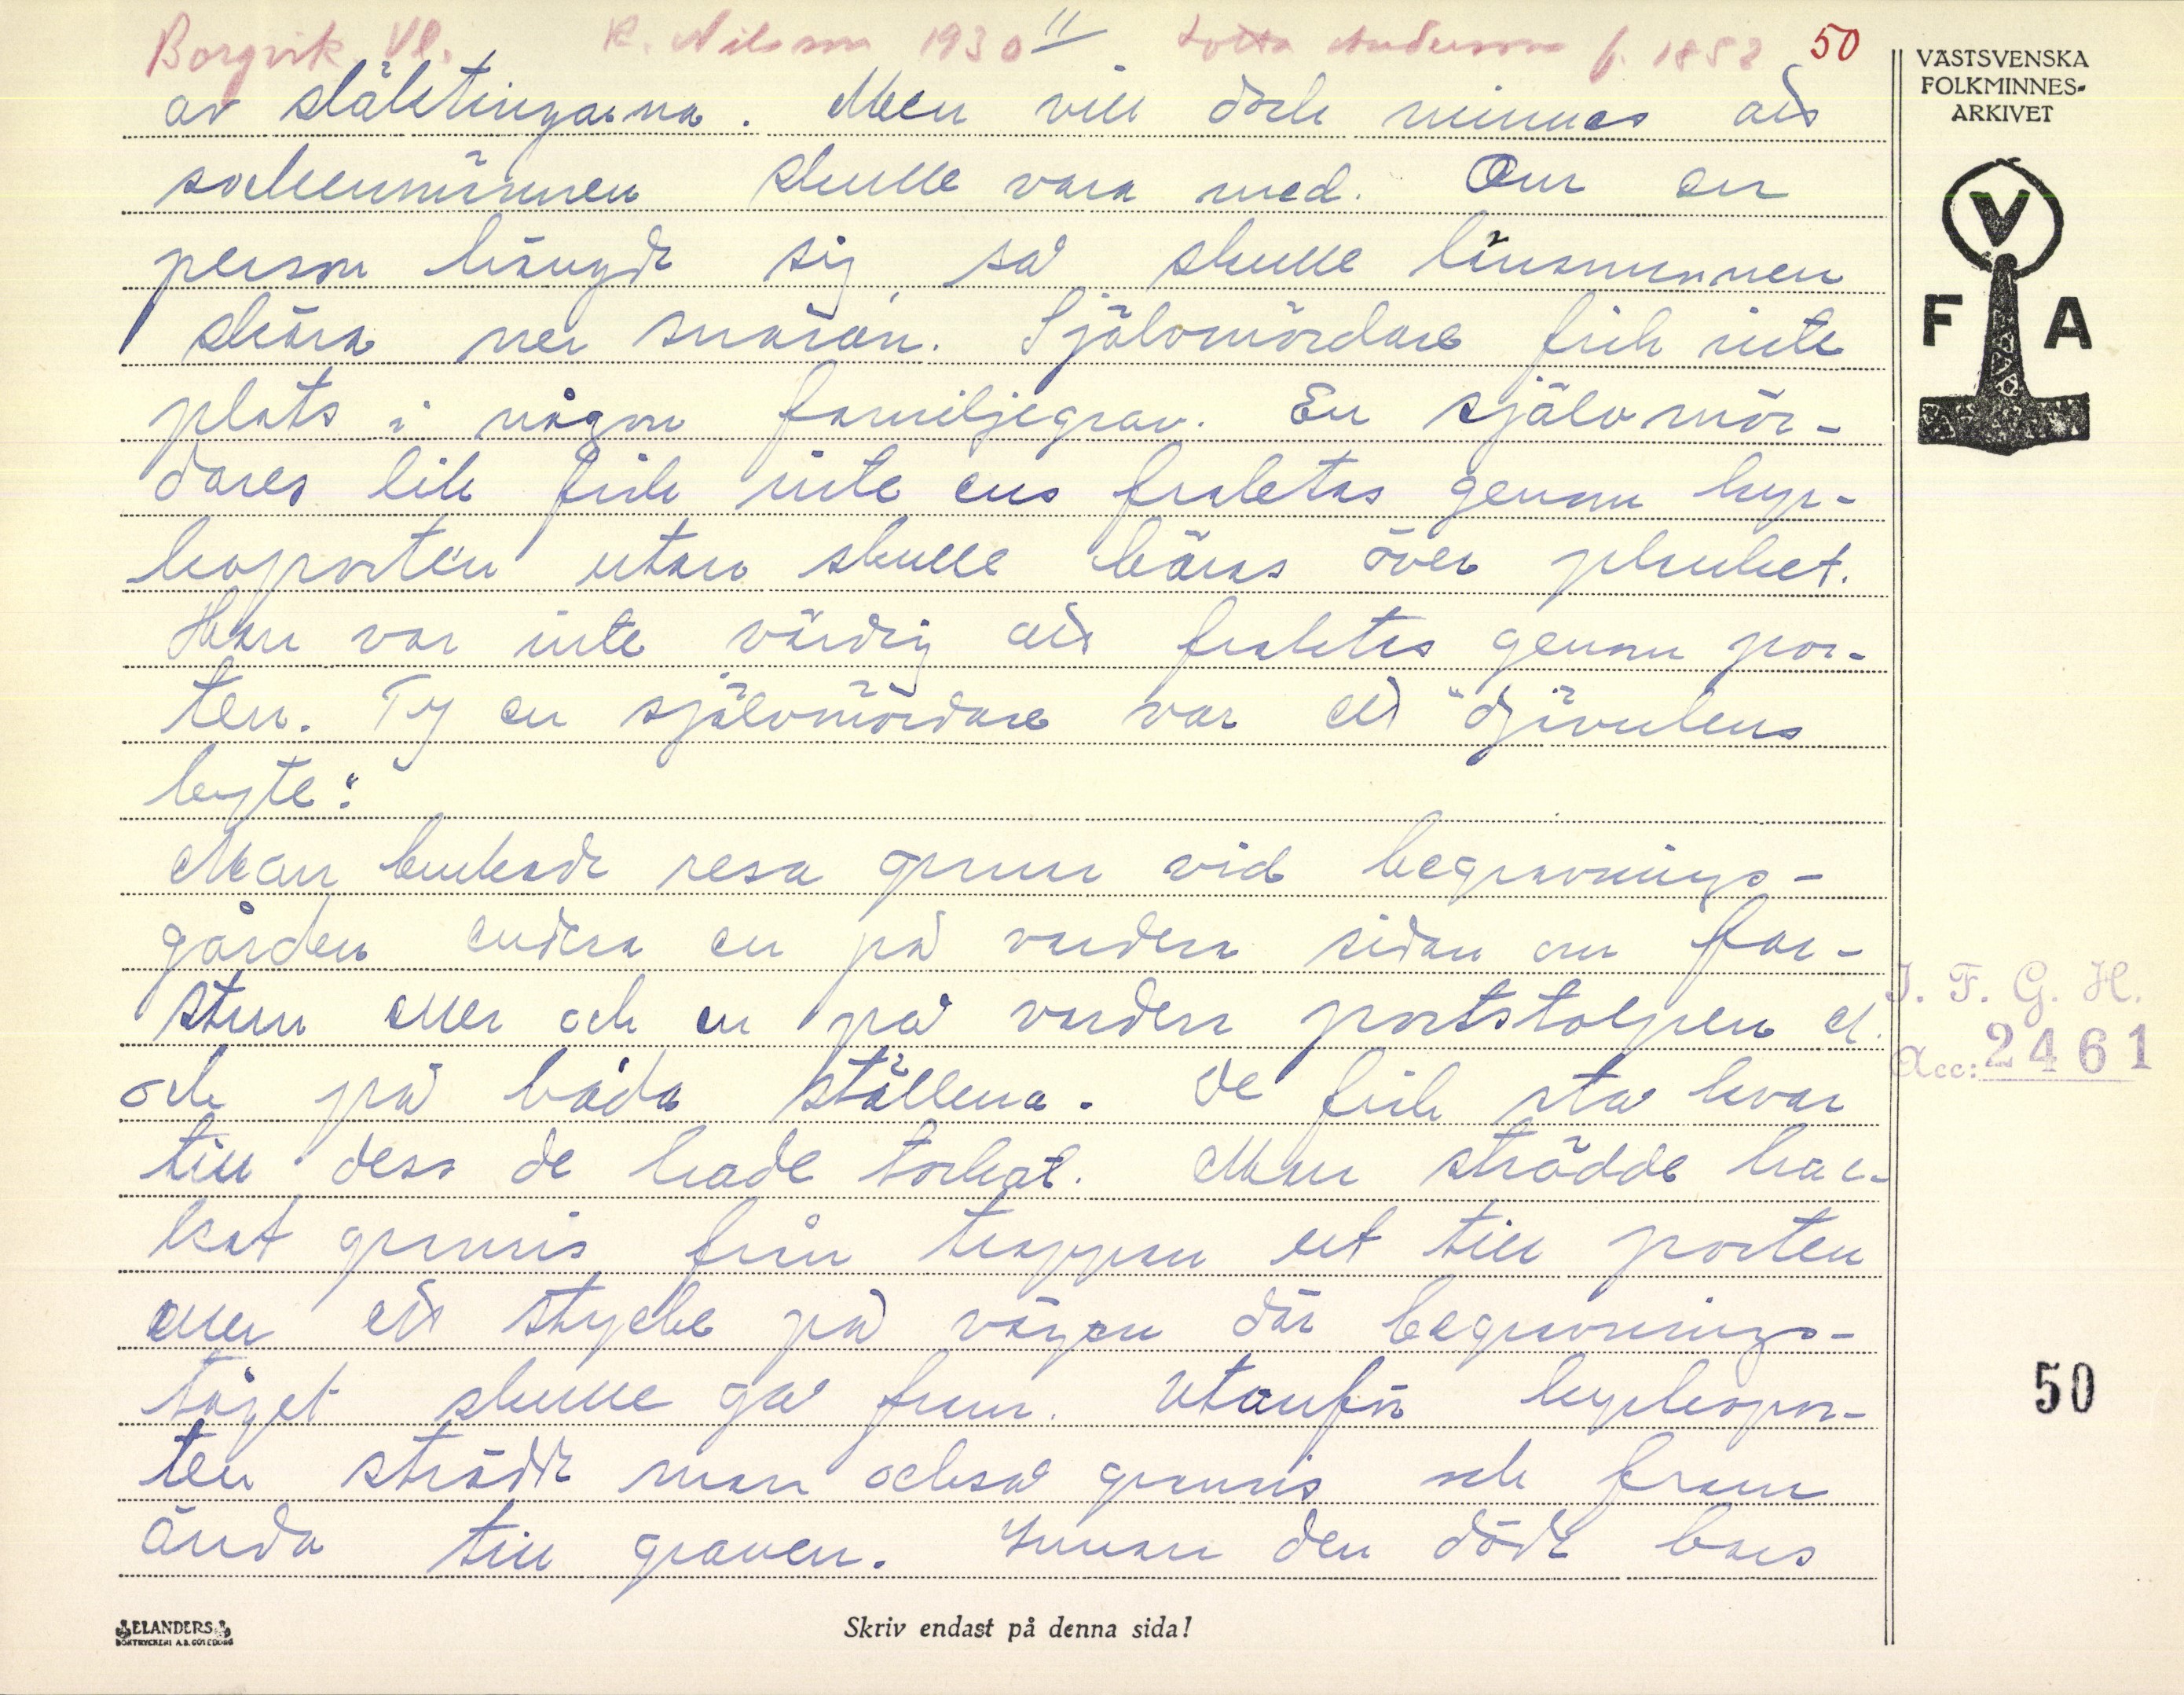 Borgvik Vl. R. Nilsson 1930 11/ Lotta Andersson f. 1852 50
av släktingarna. Men vill dock minnas att
sockenmännen skulle vara med. Om en
person hängde sig, så skulle länsmannen
skära ner snaran. Självmördare fick inte
plats i någon familjegrav. En självmör-
dares lik fick inte ens fraktas genom kyr-
koporten utan skulle bäras över planket.
Han var inte värdig att fraktas genom por-
ten. Ty en självmördare var ett "djävulens
byte".
Man brukade resa gran vid begravnings-
gården endera en på vardera sidan om far-
stun eller och en på vardera portstolpen el.
och på båda ställena. De fick stå kvar
till dess de hade torkat. Man strödde hac-
kat granris från trappan ut till porten
eller ett stycke på vägen där begravnings-
tåget skulle gå fram. Utanför kyrkopor-
ten strödde man också granris och fram
ända till graven. Innan den döde bars
VÄSTSVENSKA
FOLKMINNES-
ARKIVET
V
F A
I. F. G. H.
Acc: 2461
50
ELANDERS
BOKTRYCKERI A.B. GÖTEBORG
Skriv endast på denna sida!